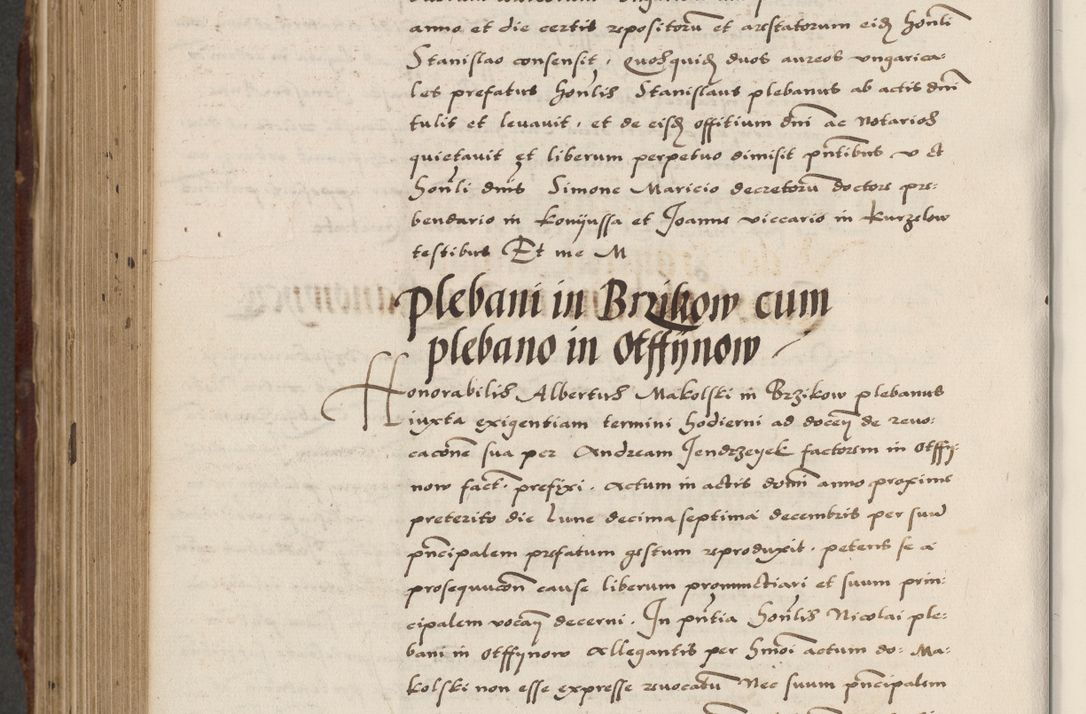 anno et die certis repositorũ et arestatorum eidẽ honli
Stanislao consensit, Quosquidẽ duos aureos ungarica-
les prefatus honlis Stanislaus plebanus ab actis dni
tulit et levavit, et de eisdẽ offitium dni ac Notarios
quietavit et liberum perpetuo dimisit pntibus v et
honli dnis Simone Maricio decretorũ doctore pre-
bendario in Konijussa et Joanne viccario in Kurzelow
testibus Et me M
plebani in Brzikow cum
plebano in Otffijnow
Honorabilis Albertus Makolski in Brzikow plebanus
iuxta exigentiam termini hodierni ad docen de revo-
cacone sua per Andream Jendrzeyek factorem in Otffij-
now fact. prefixi. Actum in actis domi anno proxime
preterito die Lune decima septima decembris per suũ
pncipalem prefatum gestum reproduxit, petens se a
prosequucon cause liberum pronunctiari et suum prin-
cipalem vocan decerni. In pntia honlis Nicolai ple-
bani in Otffijnow Allegantis per hmoi actum do: Ma-
kolski non esse expresse revocatũ Nec suum pncipalem